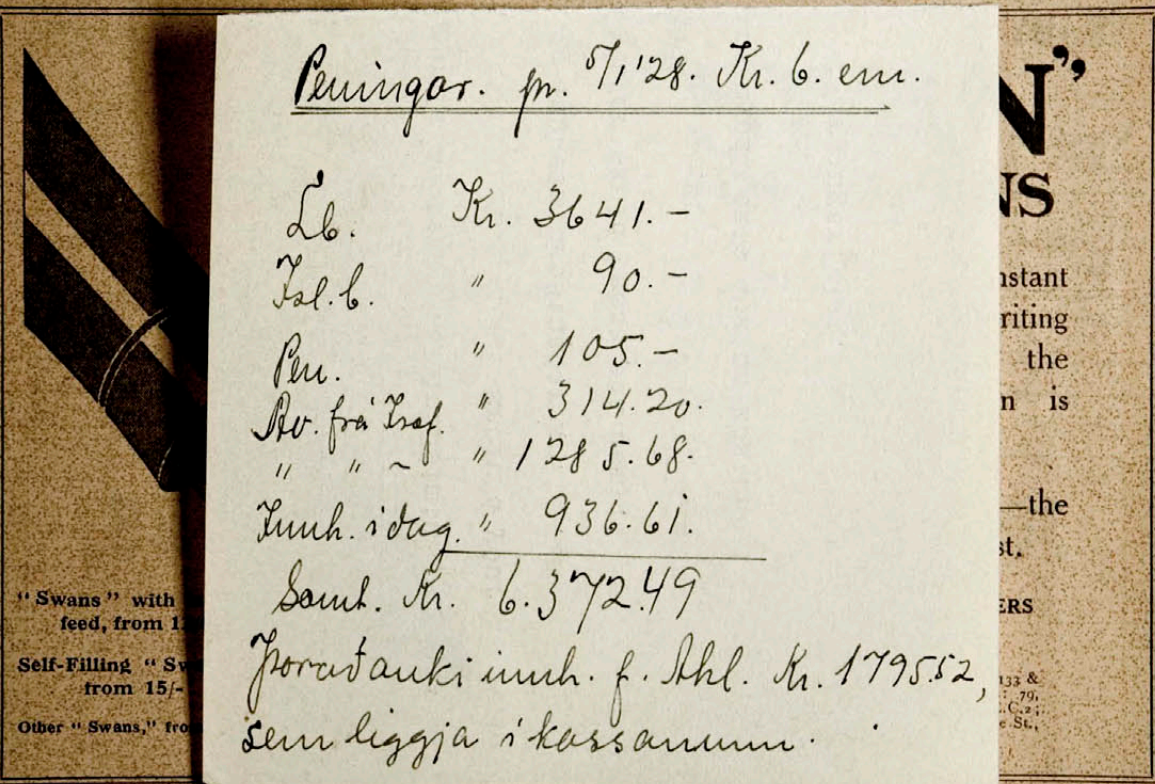 Peningar. pr. 5/1'28. Kr. 6. em.
Lb. Kr. 3641.-
Ísl.b. " 90.-
Pen. " 105.-
Av. frá Ísaf. " 314.20.
" " ~ " 1285.68.
Innh. í dag. " 936.61.
Samt. Kr. 6.372.49
Þorað auki innh. f. Akl. Kr. 1795.52,
sem liggja í kassanum.
N”
NS
nstant
riting
the
n is
—the
st.
ERS
133 &
: 79,
.C.2;
e St.,
“Swans” with
feed, from 1
Self-Filling “Sw
from 15/-
Other “Swans,” fro